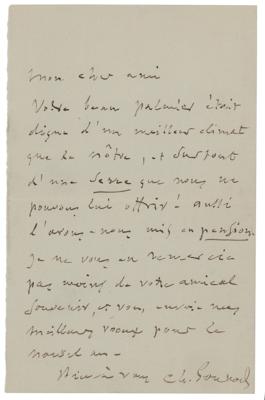 Mon cher ami
Votre beau palmier était
digne d'un meilleur climat
que le nôtre, et surtout
d'une serre que nous ne
pouvons lui offrir ! aussi
l'avons-nous mis en pension.
Je ne vous en remercie
pas moins de votre amical
souvenir, et vous envoie mes
meilleurs vœux pour le
nouvel an -
Bien à vous Ch. Gounod